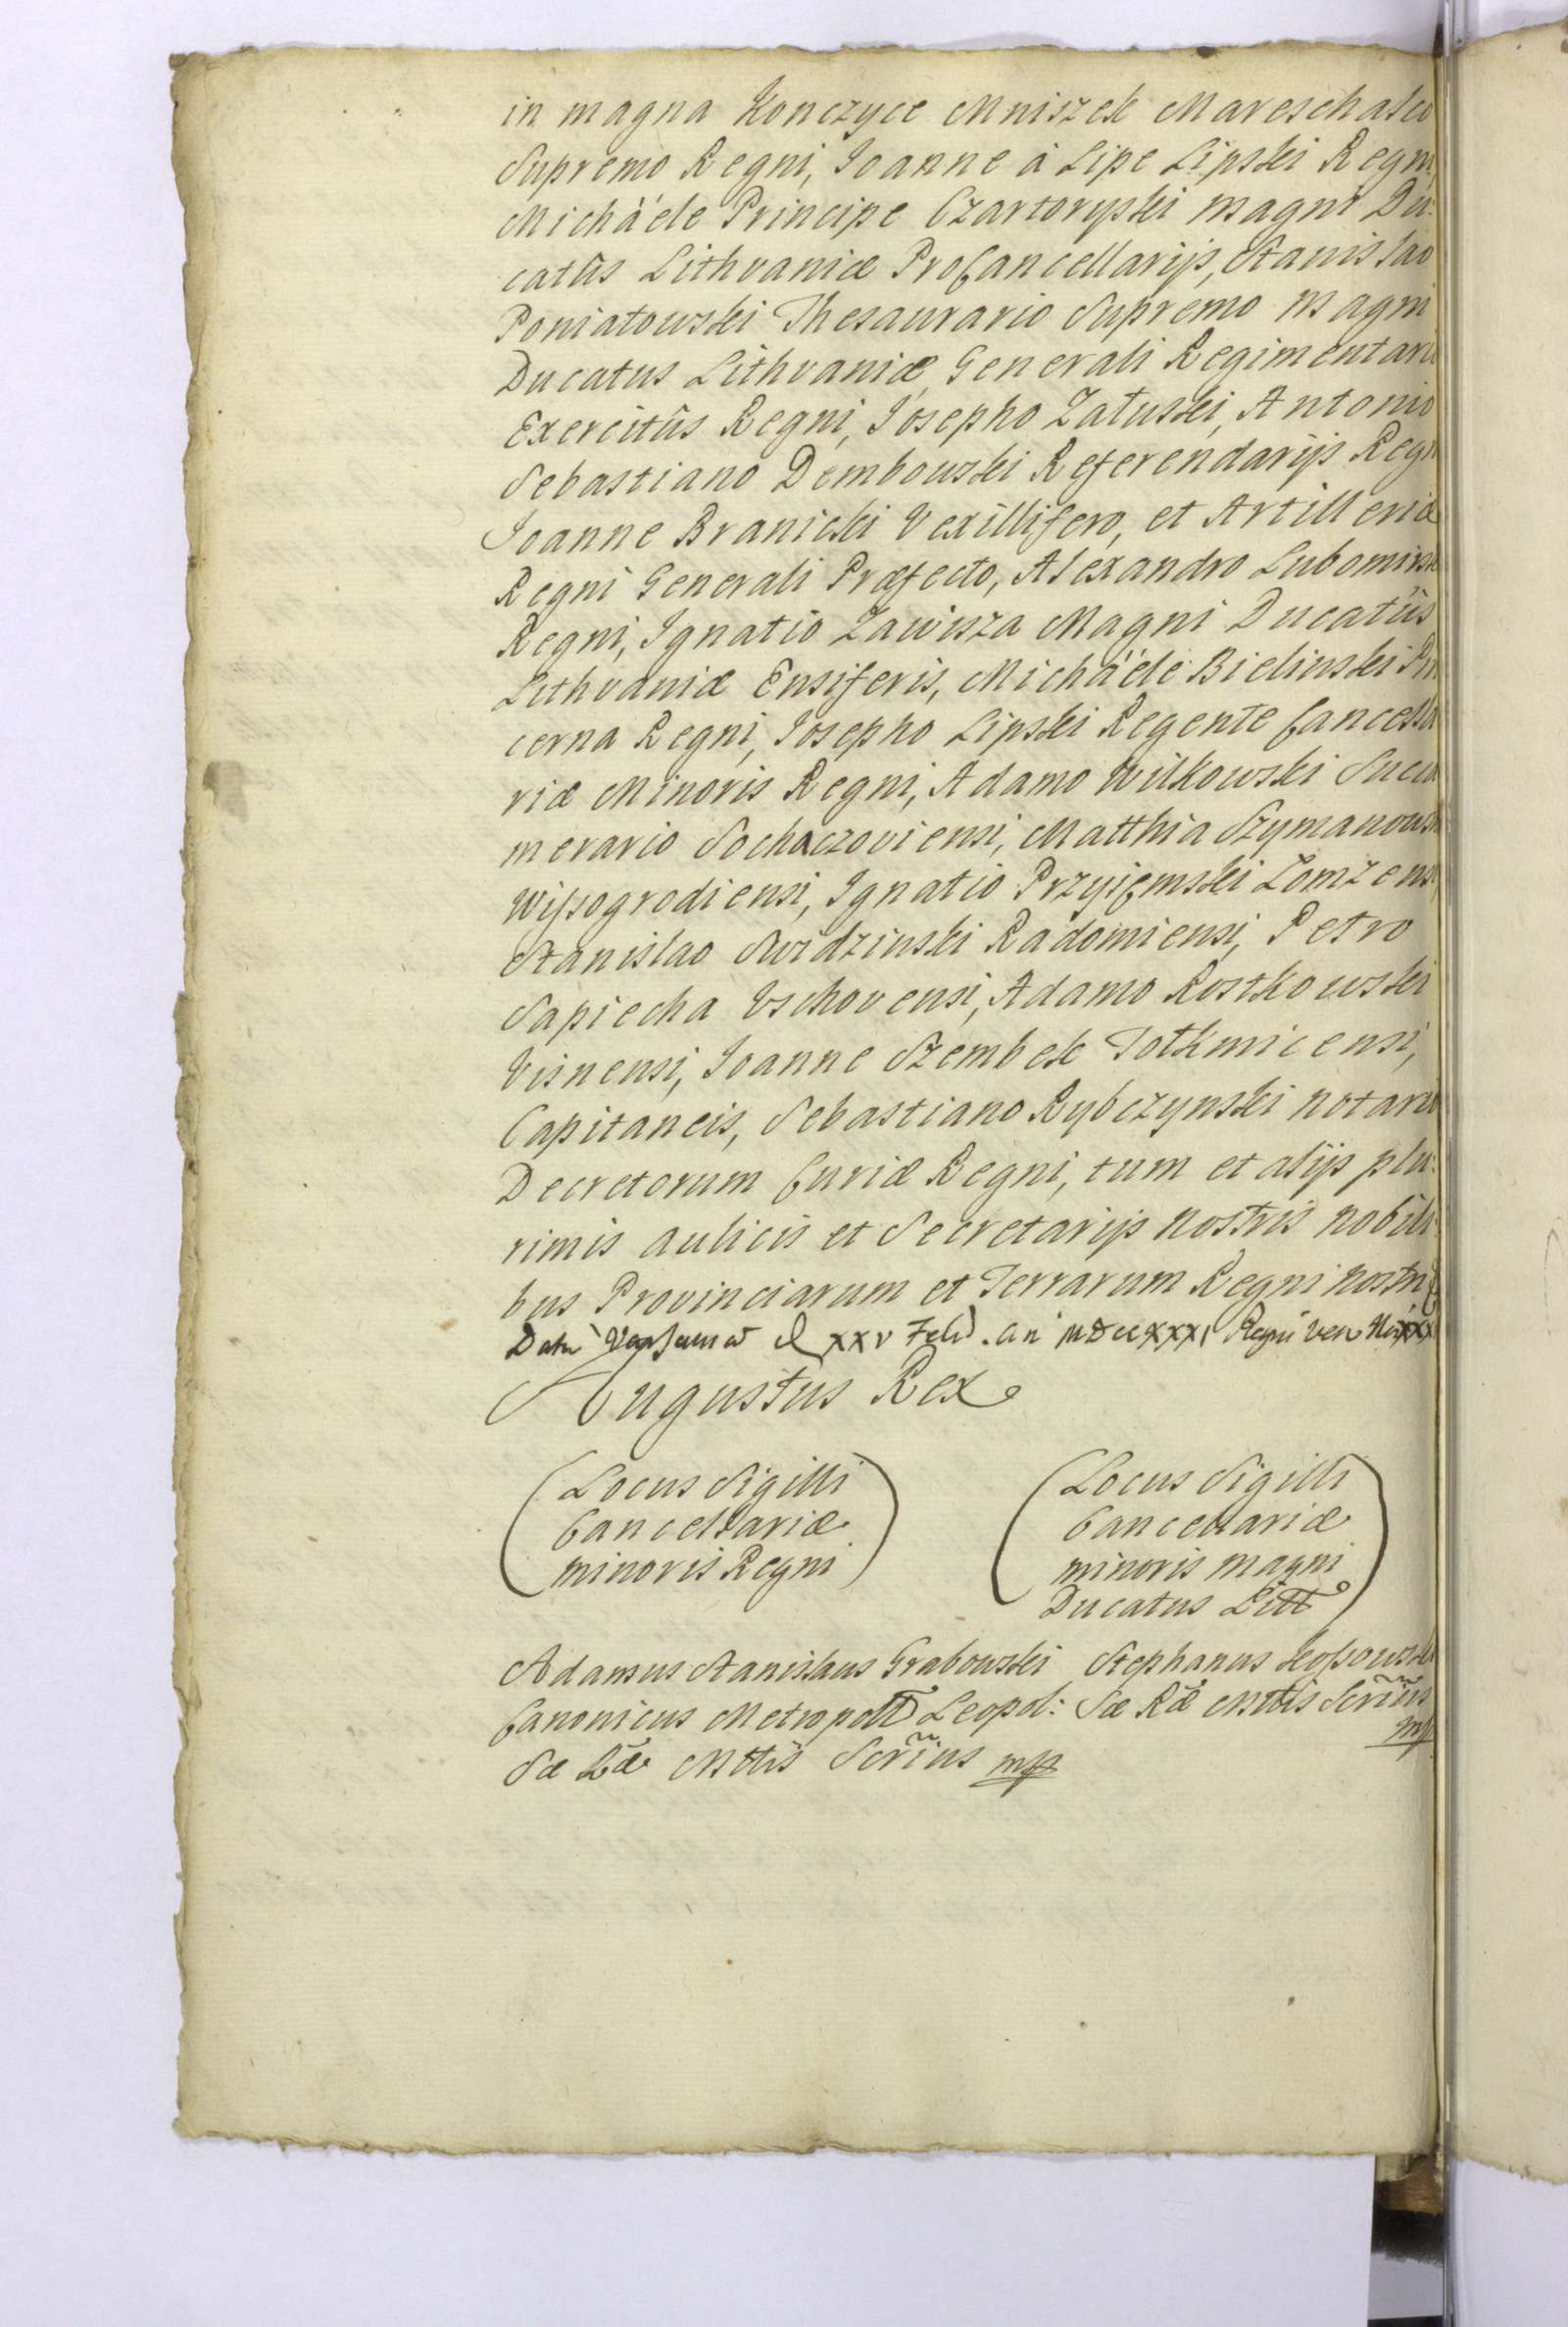 in magna Konczyce Mniszek Mareschalco
Supremo Regni, Joanne à Lipe Lipski Regni,
Michäéle Principe Czartoryski Magni Du:
catûs Lithvaniæ ProCancellarijs, Stanislao
Poniatowski Thesaurario Supremo Magni
Ducatus Lithvaniæ, Generali Regimentario
Exercitûs Regni, Josepho Załuski, Antonio
Sebastiano Dembowski Referendarijs Regni
Joanne Branicki Vexillifero, et Artilleriæ
Regni Generali Præfecto, Alexandro Lubomirski
Regni, Ignatio Zawisza Magni Ducatûs
Lithvaniæ Ensiferis, Michäéle Bielinski Pin
cerna Regni, Josepho Lipski Regente Cancella
riæ Minoris Regni, Adamo Wilkowski Succa
merario Sochaczoviensi, Matthia Szymanowski
Wyssogrodiensi, Ignatio Przyjemski Łomzensi,
Stanislao Swidzinski Radomiensi, Petro
Sapiecha Vschovensi, Adamo Rostkowski
Visnensi, Joanne Szembek Tolkmicensi,
Capitaneis, Sebastiano Rybczynski Notario
Decretorum Curiæ Regni, tum et alijs plu:
rimis Aulicis et Secretarijs Nostris Nobili:
bus Provinciarum et Terrarum Regni Nostri
Datu Varsauiæ d XXV Feb. An MDCCXXXI Regni vero
Augustus Rex
(Locus Sigilli
Cancellariæ
minoris Regni)
(Locus Sigilli
Cancellariæ
minoris Magni
Ducatus Litt)
Adamus Stanislaus Grabowski
Canonicus Metropolit Leopol:
Sæ Ræ Mttis Scrius mp
Stephanus
Sæ Ræ Mttis Scrius
mp